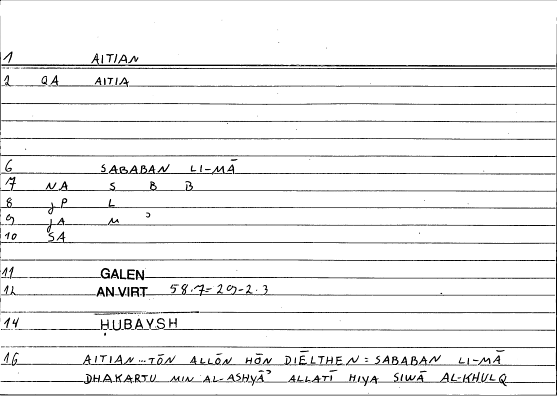 1 AITIAN
2 QA AITIA
6 SABABAN LI-MĀ
7 NA S B B
8 jP L
9 jA M ʾ
10 SA
11 GALEN
12 AN VIRT 58.7-29-2.3
14 ḤUBAYSH
16 AITIAN...TŌN ALLŌN HŌN DIĒLTHEN = SABABAN LI-MĀ
DHAKARTU MIN AL-ASHYĀʾ ALLATĪ HIYA SIWĀ AL-KHULQ